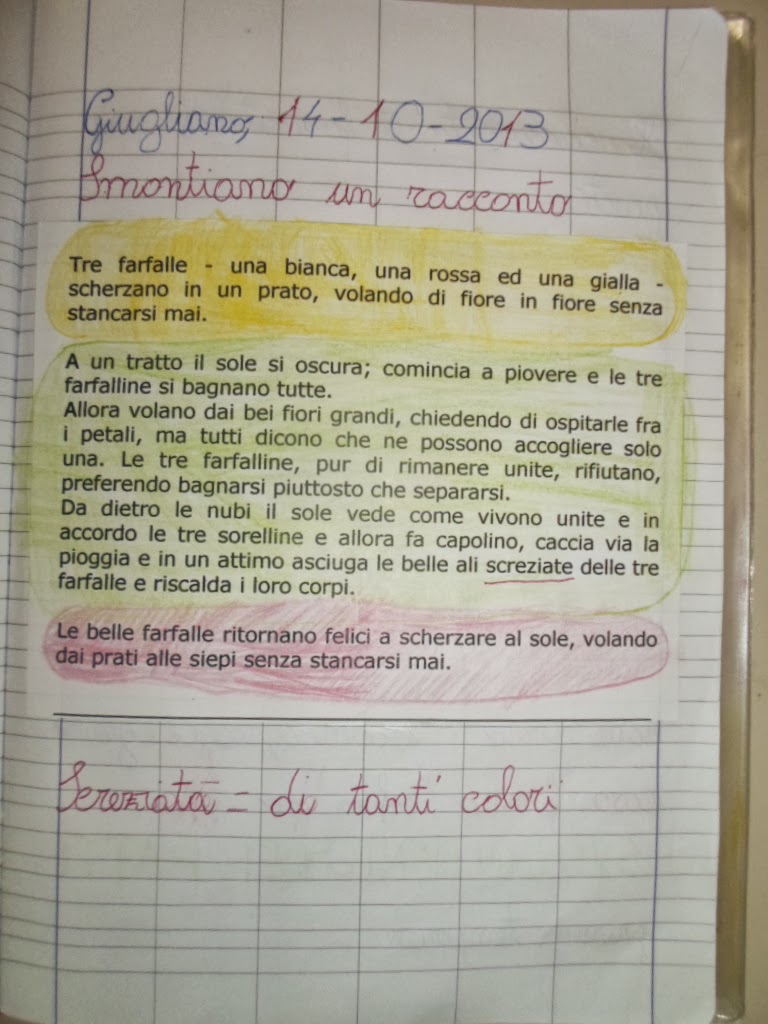 Giugliano, 14-10-2013
Smontiamo un racconto
Tre farfalle - una bianca, una rossa ed una gialla -
scherzano in un prato, volando di fiore in fiore senza
stancarsi mai.
A un tratto il sole si oscura; comincia a piovere e le tre
farfalline si bagnano tutte.
Allora volano dai bei fiori grandi, chiedendo di ospitarle fra
i petali, ma tutti dicono che ne possono accogliere solo
una. Le tre farfalline, pur di rimanere unite, rifiutano,
preferendo bagnarsi piuttosto che separarsi.
Da dietro le nubi il sole vede come vivono unite e in
accordo le tre sorelline e allora fa capolino, caccia via la
pioggia e in un attimo asciuga le belle ali screziate delle tre
farfalle e riscalda i loro corpi.
Le belle farfalle ritornano felici a scherzare al sole, volando
dai prati alle siepi senza stancarsi mai.
Screziata = di tanti colori